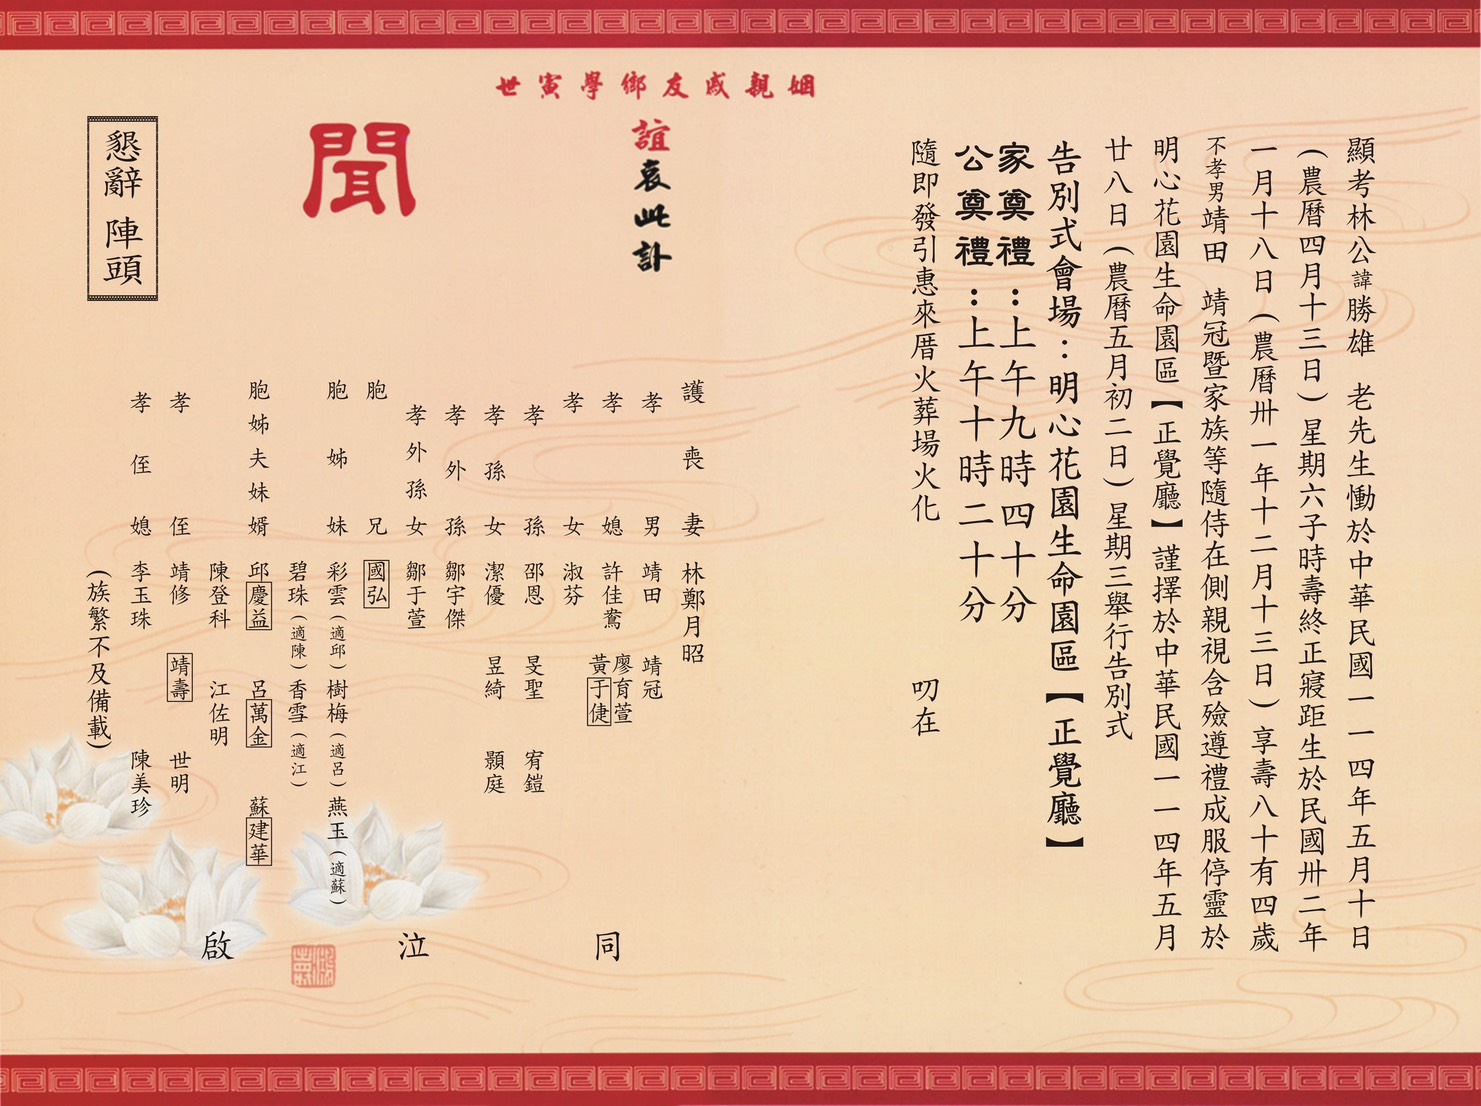 顯考林公諱勝雄　老先生慟於中華民國一一四年五月十日
(農曆四月十三日)星期六子時壽終正寢距生於民國卅二年
一月十八日(農曆卅一年十二月十三日)享壽八十有四歲
不孝男靖田　靖冠暨家族等隨侍在側親視含殮遵禮成服停靈於
明心花園生命園區【正覺廳】謹擇於中華民國一一四年五月
廿八日(農曆五月初二日)星期三舉行告別式
告別式會場：明心花園生命園區【正覺廳】
家奠禮：上午九時四十分
公奠禮：上午十時二十分
隨即發引惠來厝火葬場火化　叨在
姻親戚友鄉學寅世
誼哀此訃
聞
護喪妻　林鄭月昭
孝男　靖田　靖冠
孝媳　許佳鴦　廖育萱　黃于倢
孝女　淑芬
孝孫　邵恩　旻聖　宥鎧
孝孫女　潔優　昱綺　顥庭
孝外孫　鄒宇傑
孝外孫女　鄒于萱
胞兄　國弘
胞姊妹　彩雲(適邱)樹梅(適呂)燕玉(適蘇)
碧珠(適陳)香雪(適江)
胞姊夫妹婿　邱慶益　呂萬金　蘇建華
陳登科　江佐明
孝侄　靖修　靖壽　世明
孝侄媳　李玉珠　陳美珍
(族繁不及備載)
同　泣　啟
懇辭　陣頭